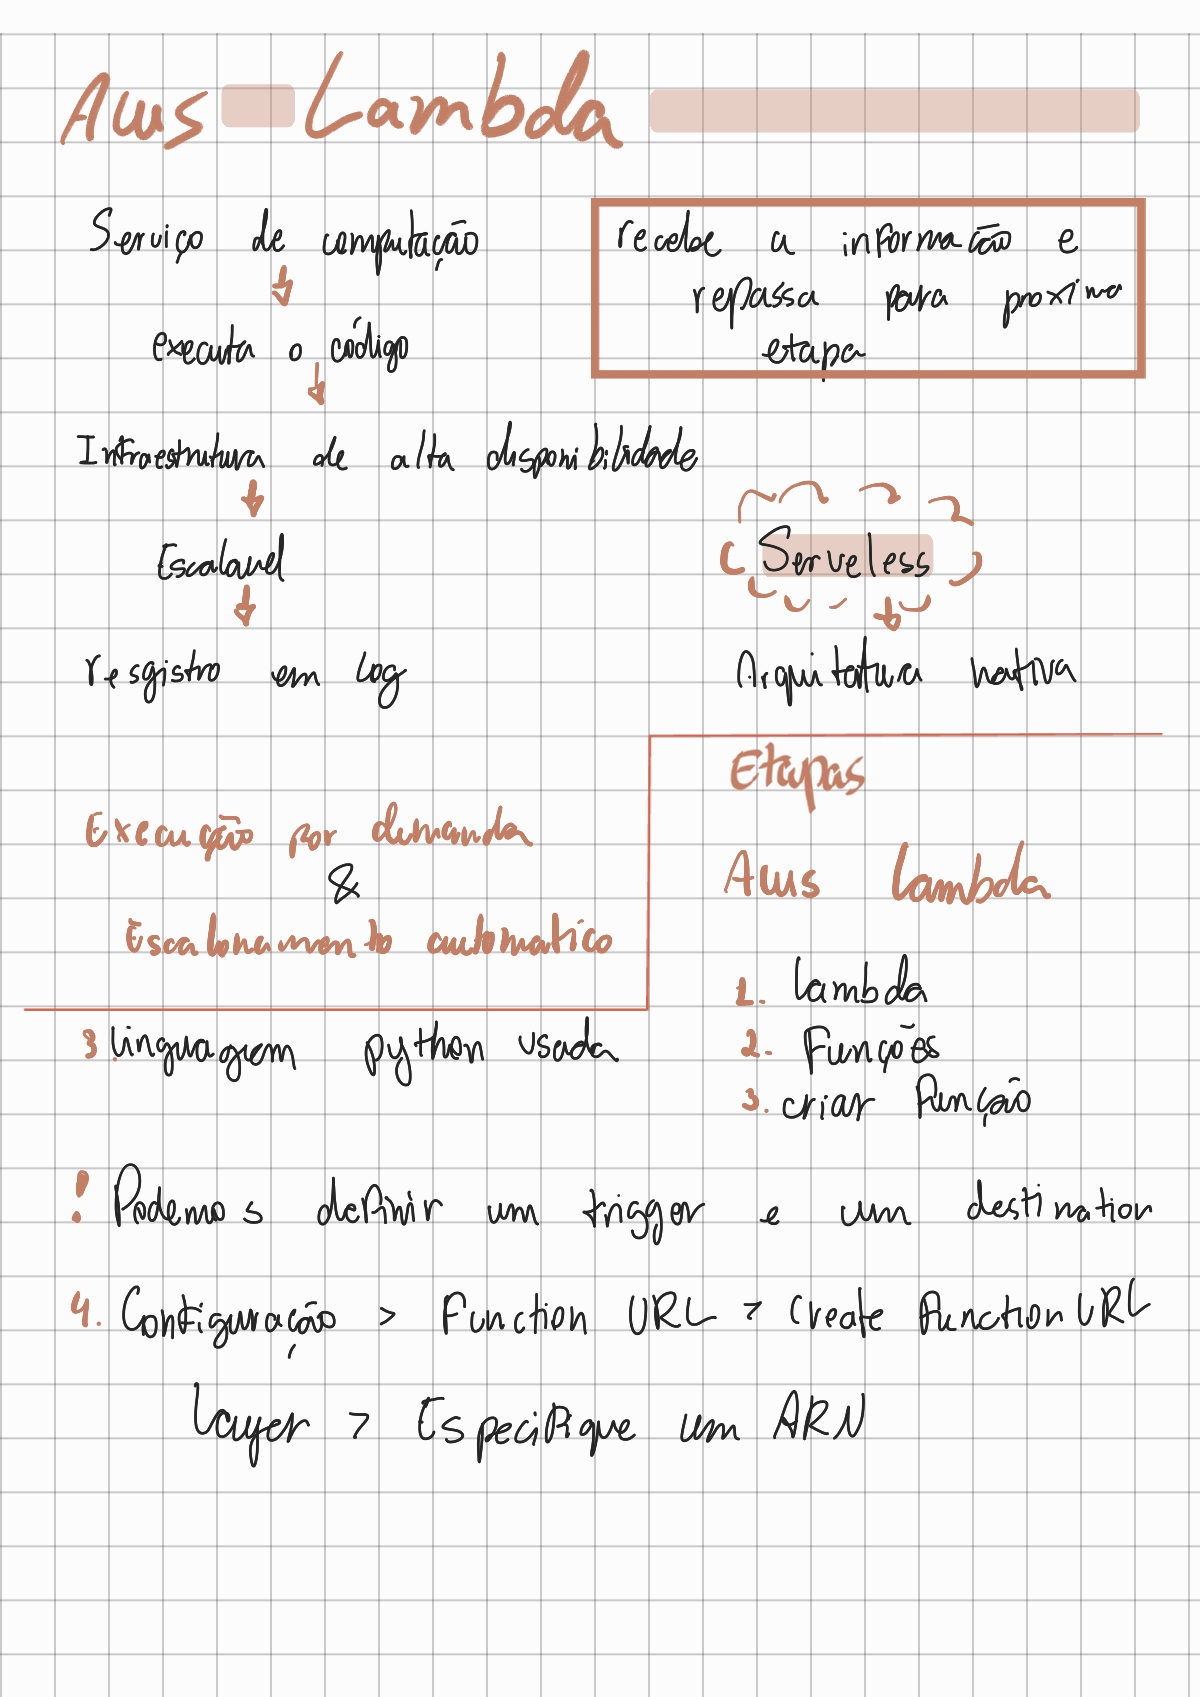 Aws Lambda
Serviço de computação
executa o código
Infraestrutura de alta disponibilidade
Escalavel
resgistro em log
recebe a informação e
repassa para proxima
etapa
Serveless
Arquitetura nativa
Execução por demanda
&
Escalonamento automatico
Etapas
Aws Lambda
1. Lambda
2. Funções
3. criar função
3. linguagem python usada
! Podemos definir um trigger e um destination
4. Configuração > Function URL > Create function URL
Layer > Especifique um ARN